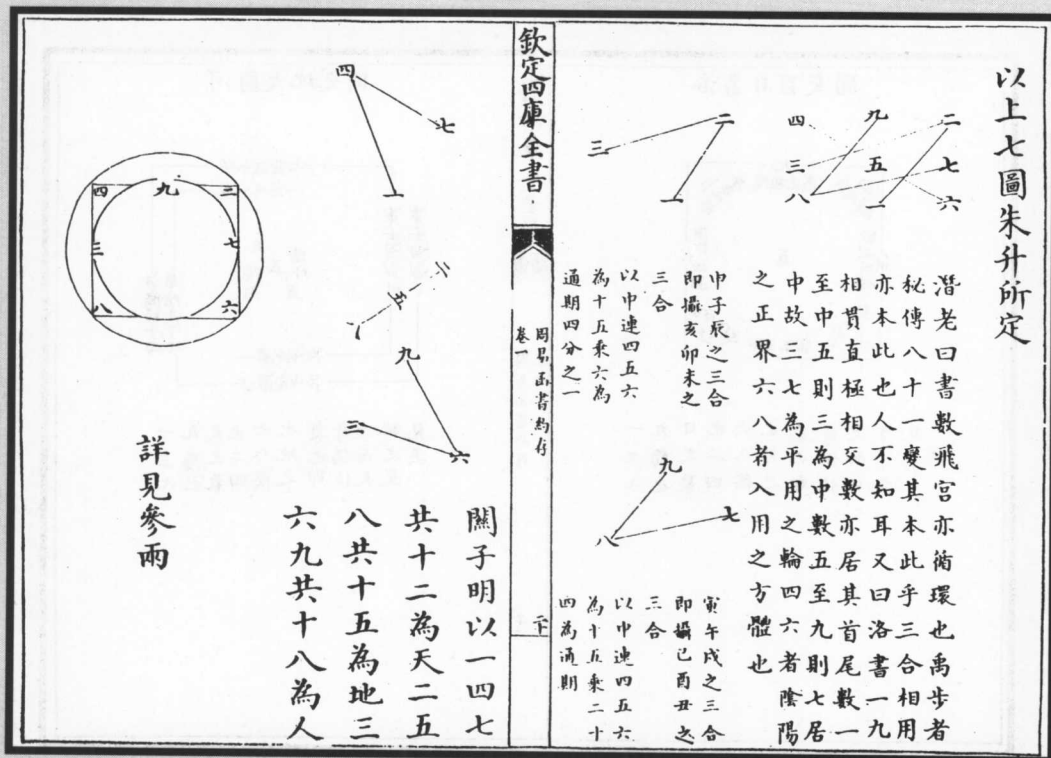 以上七圖朱升所定
二七六
九五一
四三八
二
一
三
潛老曰書數飛宮亦循環也禹步者
秘傳八十一變其本此乎三合相用
亦本此也人不知耳又曰洛書一九
相貫直極相交數亦居其首尾數一
至中五則三為中數五至九則七居
中故三七為平用之輪四六者陰陽
之正界六八者八用之方體也
申子辰之三合
即攝亥卯未之
三合
以中連四五六
為十五乘六為
通期四分之一
九
七
八
寅午戌之三合
即攝巳酉丑之
三合
以中連四五六
為十五乘二十
四為通期
欽定四庫全書
周易函書約存
卷一
二十
四
七
一
二
五
八
九
三
六
關子明以一四七
共十二為天二五
八共十五為地三
六九共十八為人
四九三
三七
八六
詳見參兩